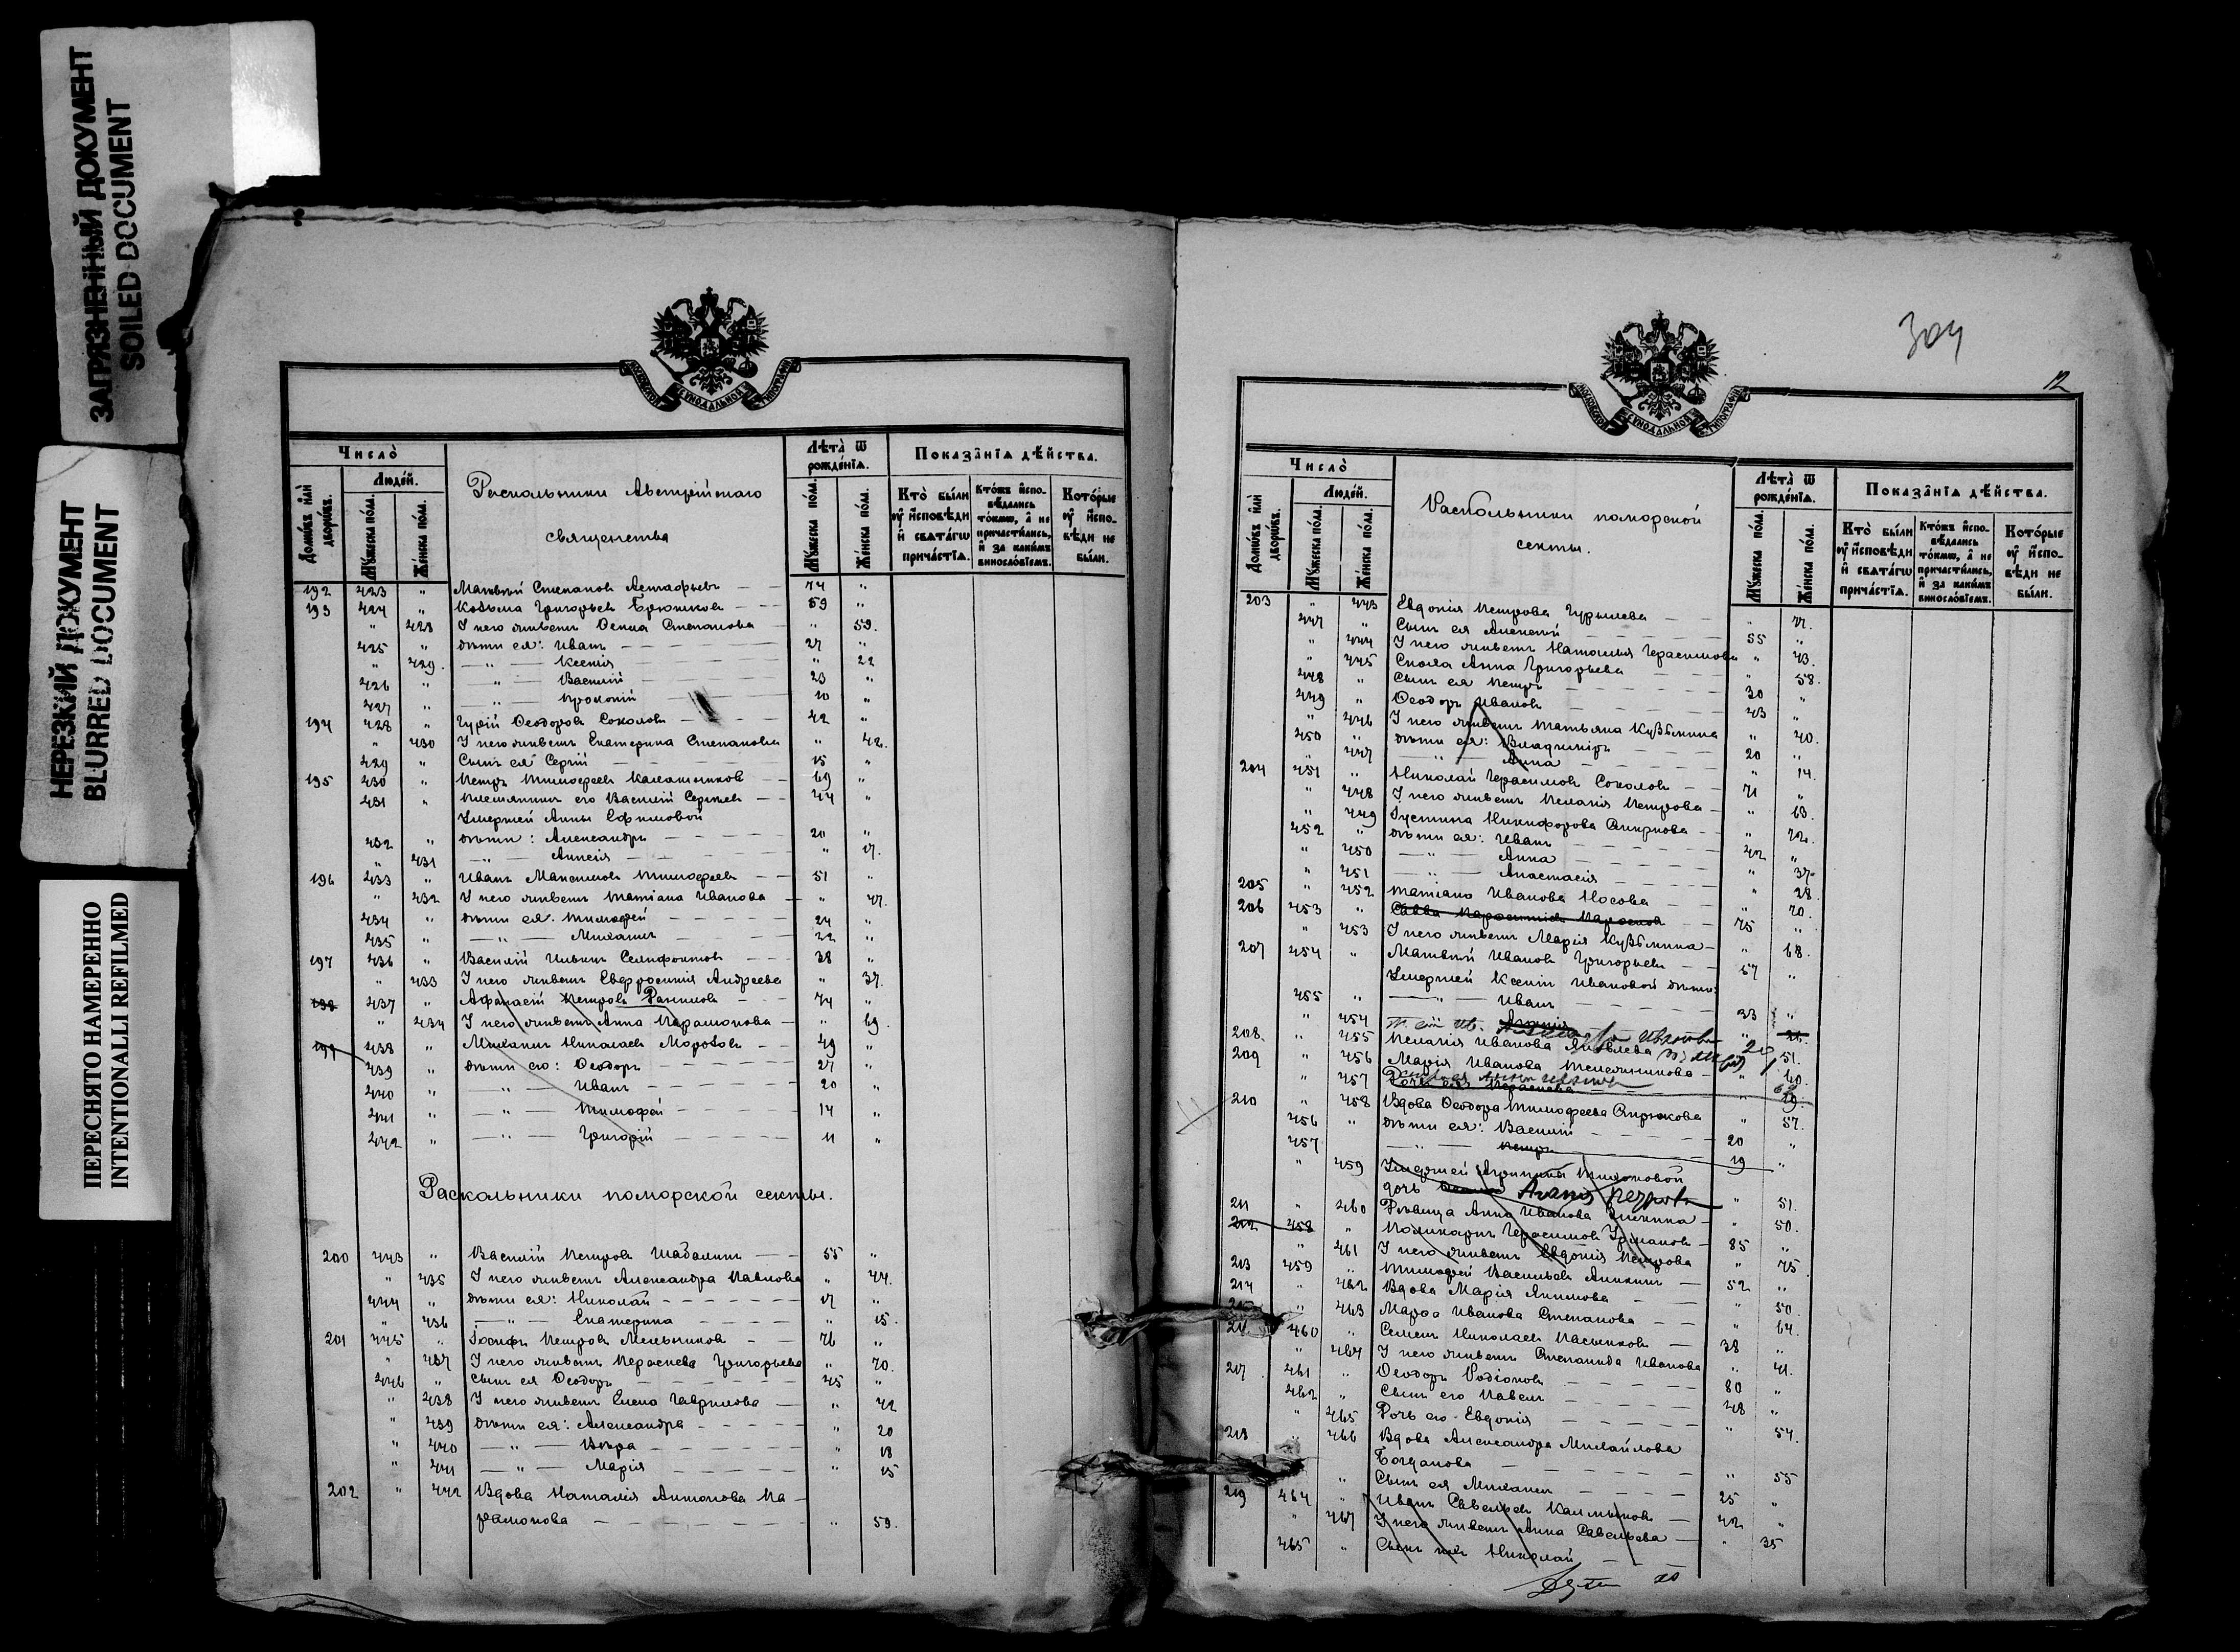 ЗАГРЯЗНЕННЫЙ ДОКУМЕНТ
SOILED DOCUMENT
НЕРЕЗКИЙ ДОКУМЕНТ
BLURRED DOCUMENT
ПЕРЕСНЯТО НАМЕРЕННО
INTENTIONALLI REFILMED
МОСКОВСКОЙ СѴНОДАЛЬНОЙ ТИПОГРАФІИ
Число̀
Домѡ́въ и҆лѝ дворѡ́въ.
Люде́й.
Мꙋ́жеска по́ла.
Же́нска по́ла.
Раскольники Австрійскаго
священства
Лѣта̀ ѿ рожде́нїѧ.
Мꙋ́жеска по́ла.
Же́нска по́ла.
Показа̑нїѧ дѣ́йства.
Кто̀ бы́ли оу҆ и҆сповѣ́ди и҆ свѧта́гѡ прича́стїѧ.
Кто́жъ и҆сповѣ́дались то́кмѡ, а҆ не причасти́лись, и҆ за каки́мъ винослові́емъ.
Кото́рые оу҆ и҆сповѣ́ди не бы́ли.
192 423 " Матвѣй Степановъ Астафьевъ — — 74 "
193 424 " Козьма Григорьевъ Брюшковъ — — 59 "
" 428 У него жена Степанова — " 59.
425 " дѣти ея: Иванъ — — — 27 "
" 429. — " — Ксенія — — — " 22
426 " — " — Василій — — — 23 "
427 " — " — Прокопій — — — 10 "
194 428 " Гурій Ѳеодоровъ Соколовъ — — 42 "
" 430 У него жена Екатерина Степановна " 42.
429 " Сынъ ея Сергій — — — 15 "
195 430 " Петръ Тимофеевъ Калашниковъ — 69 "
431 " Племянникъ его Василій Сергѣевъ — 44 "
Умершей Анны Ефимовой
432 " дѣти: Александръ — — — 20 "
" 431 — " — Алексія — — — " 17.
196 433 " Иванъ Максимовъ Тимофеевъ — — 51 "
" 432 У него жена Татіана Иванова — " 47.
434 " дѣти ея: Тимофей — — — 24 "
435 " — " — Михаилъ — — — 22 "
197 436 " Василій Ильинъ — — 38 "
" 433 У него жена Евфросинія Андреева " 37.
198 437 " Афанасій Петровъ — — 74 "
" 434 У него жена Анна Парамонова — " 69.
199 438 " Михаилъ Николаевъ Морозовъ — 49 "
439 " дѣти его: Ѳеодоръ — — — 27 "
440 " — " — Иванъ — — — 20 "
441 " — " — Тимофей — — — 14 "
442 " — " — Григорій — — — 11 "
Раскольники поморской секты.
200 443 " Василій Петровъ Шабалинъ — — 55 "
" 435 У него жена Александра Павлова " 44.
444 " дѣти ея: Николай — — — 17 "
" 436 — " — Екатерина — — — " 15.
201 445 " Петровъ Мельниковъ — — 76 "
" 437 У него жена Григорьева " 70.
446 " Сынъ ея Ѳеодоръ — — — 45 "
" 438 У него жена Елена Гаврилова — " 42
" 439 дѣти ея: Александра — — — " 20
" 440 — " — Вѣра — — — " 18
" 441 — " — Марія — — — " 15
202 " 442 Вдова Наталія Антонова Па-
рамонова — — — " 59.
304
12
МОСКОВСКОЙ СѴНОДАЛЬНОЙ ТИПОГРАФІИ
Число̀
Домѡ́въ и҆лѝ дворѡ́въ.
Люде́й.
Мꙋ́жеска по́ла.
Же́нска по́ла.
Раскольники поморской
секты.
Лѣта̀ ѿ рожде́нїѧ.
Мꙋ́жеска по́ла.
Же́нска по́ла.
Показа̑нїѧ дѣ́йства.
Кто̀ бы́ли оу҆ и҆сповѣ́ди и҆ свѧта́гѡ прича́стїѧ.
Кто́жъ и҆сповѣ́дались то́кмѡ, а҆ не причасти́лись, и҆ за каки́мъ винослові́емъ.
Кото́рые оу҆ и҆сповѣ́ди не бы́ли.
203 " 443 Евдокія Петрова — " 77.
447 " Сынъ ея Алексѣй — — — 55 "
" 444 У него жена Наталья Герасимова " 43.
" 445 Сноха Анна Григорьева — — " 58.
448 " Сынъ ея Петръ — — — 30 "
449 " Ѳеодоръ Ивановъ — — — 43 "
" 446 У него жена Татьяна Кузьмина " 40.
450 " дѣти ея: Владиміръ — — — 20 "
" 447 — " — Анна — — — " 14.
204 451 " Николай Герасимовъ Соколовъ — 71 "
" 448 У него жена Пелагія Петрова — " 63.
" 449 Іустина Никифорова — " 72.
452 " дѣти ея: Иванъ — — — 42 "
" 450 — " — Анна — — — " 37.
" 451 — " — Анастасія — — — " 28.
205 " 452 Татіана Иванова Носова — — " 70.
206 453 " Савва — 75 "
" 453 У него жена Марія Кузьмина — " 68.
207 454 " Матвѣй Ивановъ Григорьевъ — — 67 "
Умершей Ксеніи Ивановой дѣти:
455 " — " — Иванъ — — — 33 "
" 454
208. " 455 Пелагія Иванова Яковлева " 51.
209 " 456 Марія Иванова — " 60.
" 457 Дочь ея " 19.
210 " 458 Вдова Ѳеодора Тимофеева " 57.
456 " дѣти ея: Василій — — — 20 "
457 — " — Петръ — — — 19 "
" 459 Умершей Агрипины Тихоновой
дочь " 51.
211 " 460 Дѣвица Анна Иванова — " 50.
212 458 " Герасимовъ — 85 "
" 461 У него жена Евдокія Петрова " 75.
213 459 " Тимофей Васильевъ Аникинъ — 52 "
214 " 462 Вдова Марія Акимова — — " 50.
" 463 Марѳа Иванова Степанова — — " 64.
460 " Семенъ Николаевъ — 38 "
" 464 У него жена Степанида Иванова " 41.
217 461 " Ѳеодоръ Родіоновъ — — — 80 "
462 " Сынъ его Павелъ — — — 48 "
" 465 Дочь его Евдокія — — — " 54.
218 " 466 Вдова Александра Михайлова
Богданова — — — " 55
" Сынъ ея Михаилъ — — — 25 "
219 464 " Иванъ Савельевъ Калмыковъ — 42 "
" 467 У него жена Анна Савельева — " 35
465 " Сынъ ихъ Николай — — —